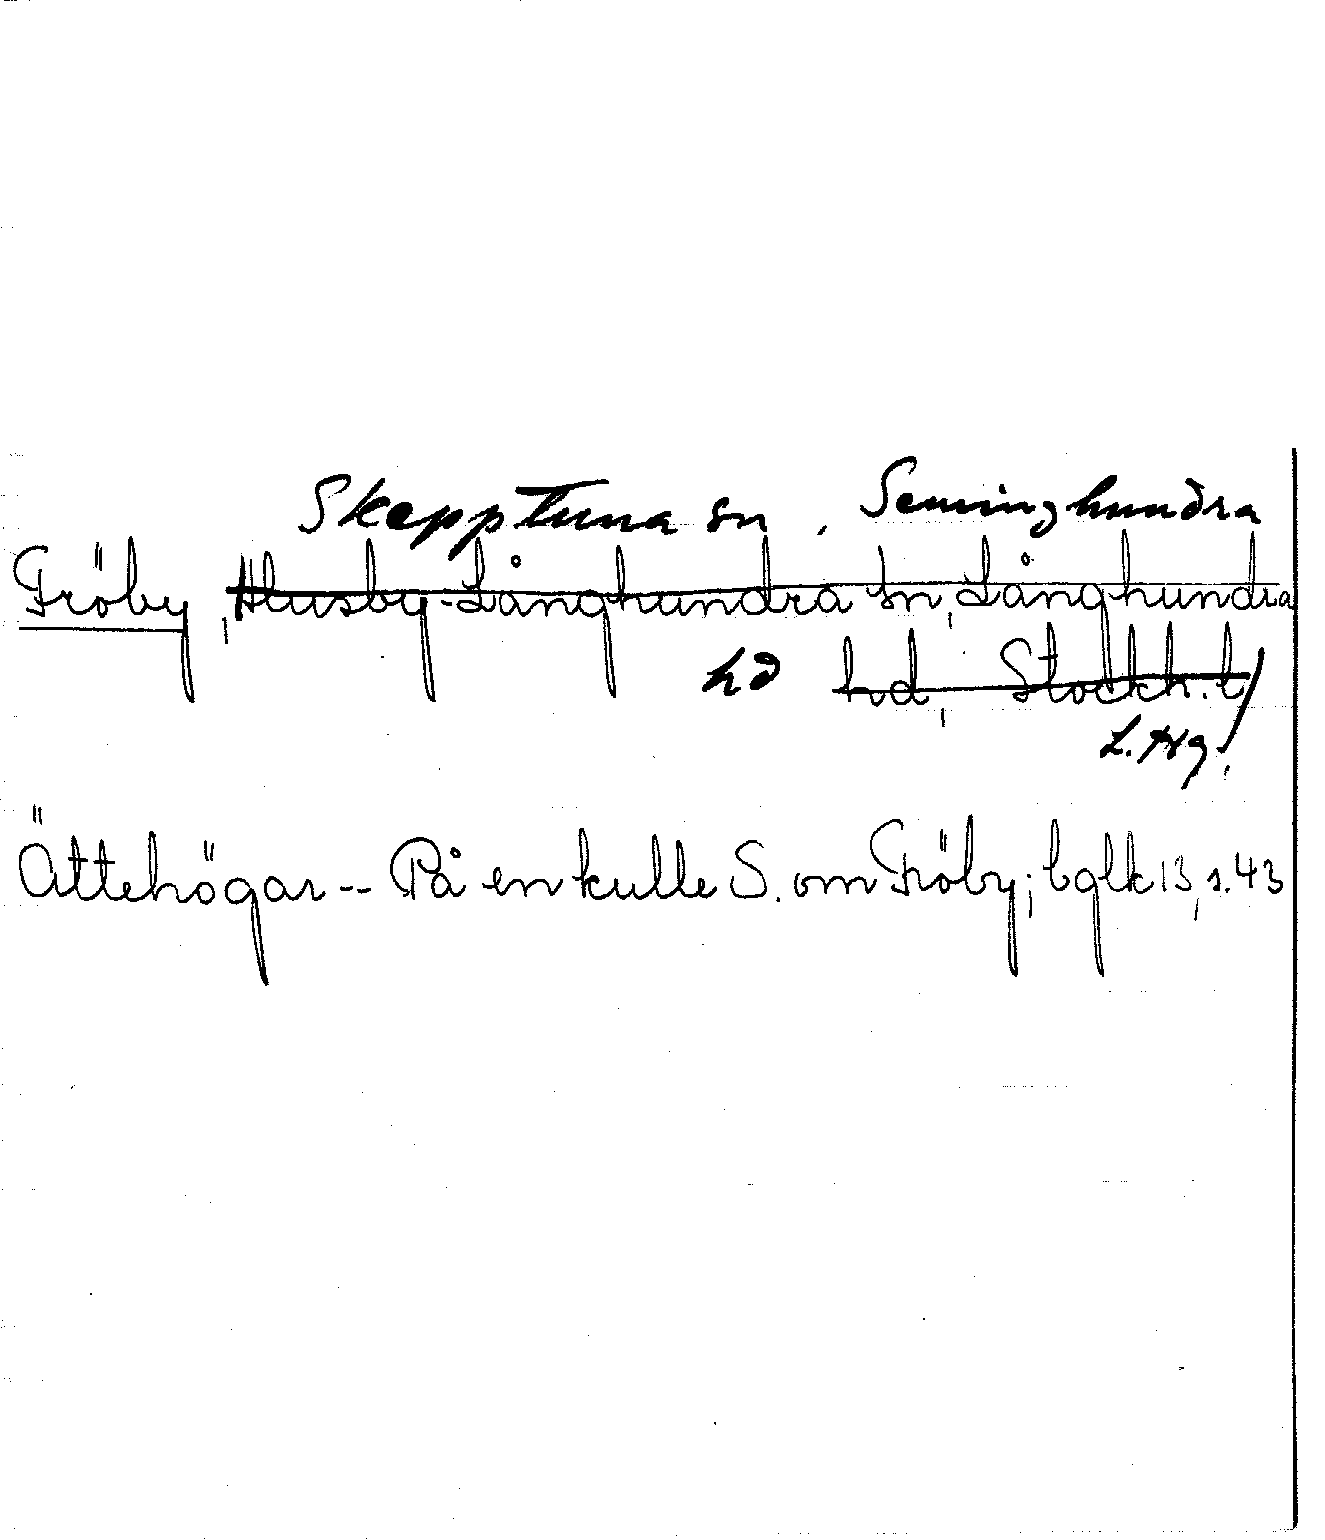 Skepptuna sn, Seminghundra
Fröby, Husby-Långhundra sn, Långhundra
hd hd, Stockh. l
L. Hg.
Ättehögar -- På en kulle S. om Fröby; bglk 13, s. 43